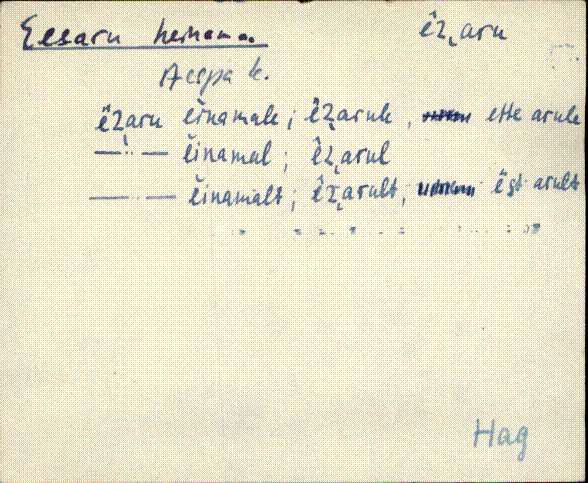 Eesaru heinama. êz̨aru
Aespa k.
ëz̨aru èinamale; êz̨arule, ette arule
—"— èinamal; êz̨arul
—"— èinamalt; êz̨arult, ëşt arult
Hag